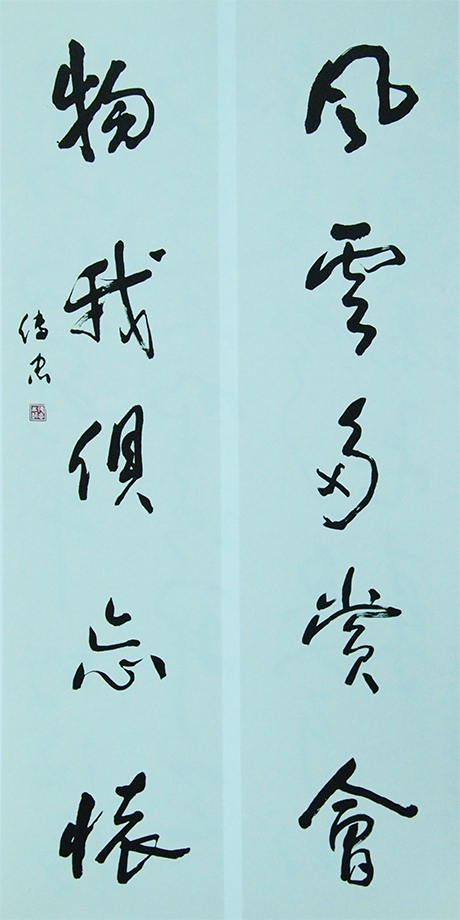 風雲多賞會
物我俱忘懷
傳忠